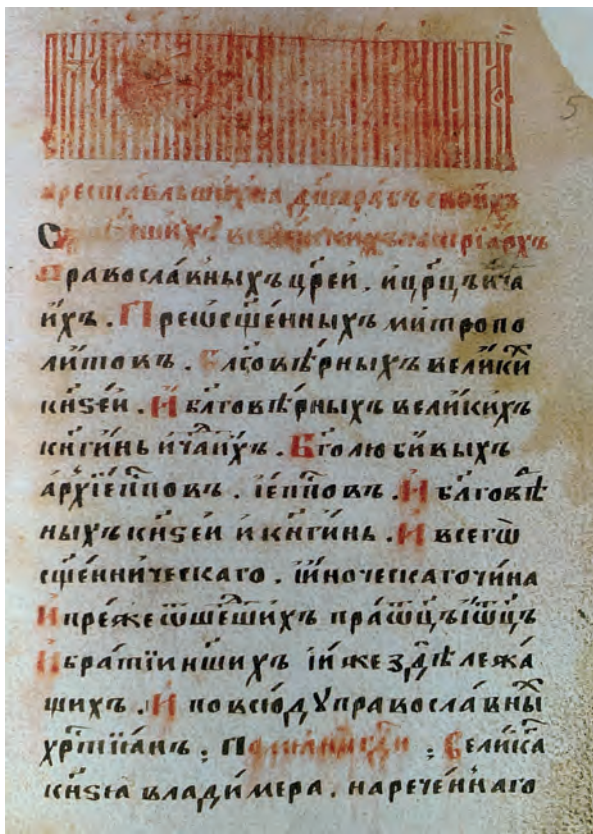 5
преставльшихъ
вселенскихъ патрїархъ
Православныхъ цр҃ей, и цр҃цъ и ча
ихъ. Преѡсщ҃е́нныхъ митропо
ли́товъ. Бл҃говѣ́рныхъ вели́кихъ
кн҃ѕе́й. И҆ бл҃говѣ́рныхъ вели́кихъ
кн҃ги́нь и҆ ча́дъ и҆́хъ. Бг҃олюби́выхъ
а҆рхїеп҃повъ. і҆ еп҃повъ. И҆ бл҃говѣ́
ныхъ кн҃ѕе́й и҆ кн҃ги́нь. И҆ всегѡ̀
сщ҃е́нническаго, и҆ и҆́ноческаго чи́на
И҆ пре́же ѿше́дшихъ пра́ѻц҃ъ и҆ ѻ҆ц҃ъ
И҆ бра́тїи на́шихъ і҆ и҆́же здѣ̀ лежа́
щихъ. И҆ повсю́дꙋ правосла́вны́хъ
хр҃тїа́нъ; Помѧни гд҃и; Вели́ка
кн҃ѕѧ влади́мера, нарече́ннаго